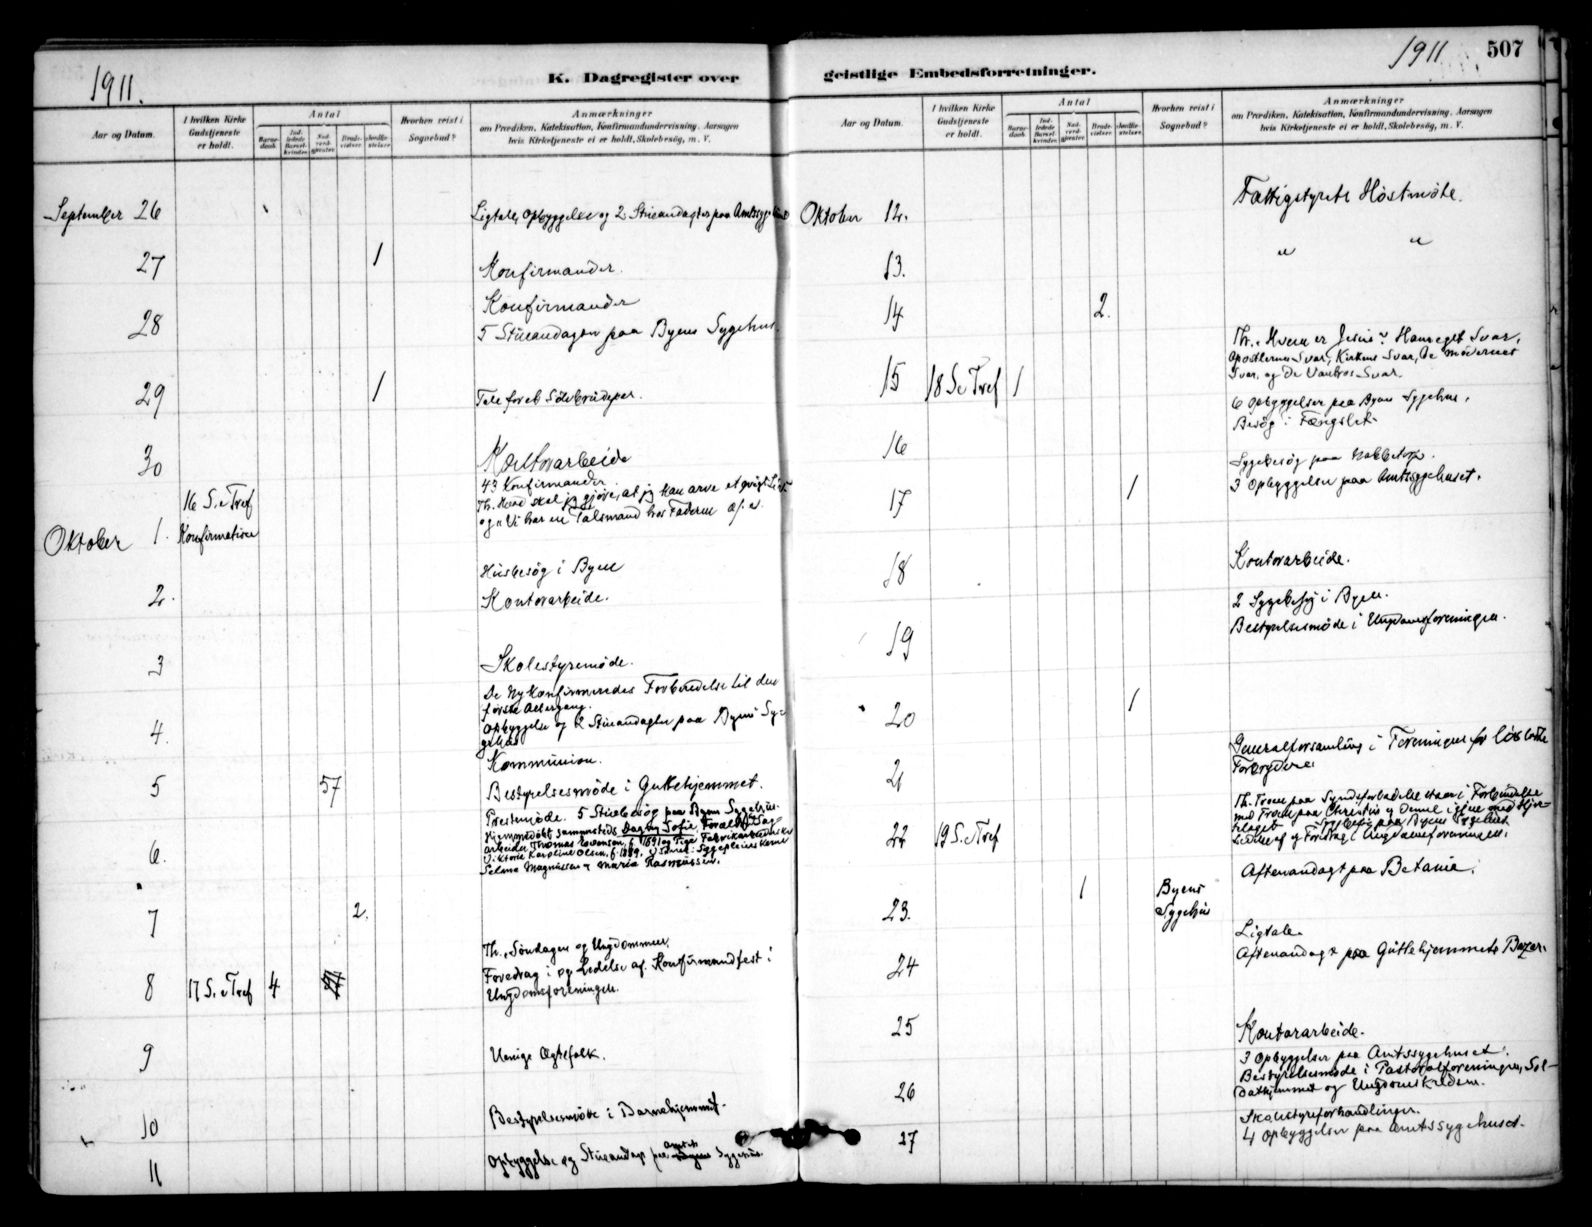 1911.
K. Dagregister over
Aar og Datum.
I hvilken Kirke Gudstjeneste er holdt.
Antal
Barne-daab.
Ind-ledede Barsel-kvinder.
Nad-verd-gjester.
Brude-vielser.
Jordfæ-stelser.
Hvorhen reist i Sognebud?
Anmærkninger
om Prædiken, Katekisation, Konfirmandundervisning, Aarsagen
hvis Kirketjeneste ei er holdt, Skolebesøg, m. V.
September 26 Ligtale, opbyggelse og 2 Stueandagter paa Amtssyge
27 1 Konfirmander.
28 Konfirmander
5 Stueandagter paa Byens Sygehus.
29 1 Tale for et Sölvbrudepar.
30 Kontorarbeide
43 Konfirmander.
Th. Hvad skal jeg gjöre, at jeg kan arve et evigt Liv
og "Vi har en Talsmand hos Faderen
16 S. e Tref
Oktober 1. Konfirmation
Husbesög i Byen
2. Kontorarbeide.
3 Skolestyremöde.
De Nykonfirmeredes Forberedelse til den
förste Altergang.
4. Opbyggelse og 2 Stueandagter paa Byens Sy-
gehus
Kommunion.
5 57 Bestyrelsesmöde i Guttehjemmet.
Prestemöde. 5 Stuebesög paa Byens Sygehus.
Hjemmedöbt sammesteds Dagny Sofie, Forældre: Sag-
arbeider Thomas f. 1891 og Pige Fabrikarbeiderske
6. Viktoria Karoline Olsen, f. 1889, Sygepleierskerne
Selma Magnussen og Maria Rasmussen.
7 2.
Th. "Söndagen og Ungdommen,
Foredrag i og Ledelse af Konfirmandfest i
8 17 S. e Tref 4 57 Ungdomsforeningen.
9 Uenige Ægtefolk.
10 Bestyrelsesmöde i Barnehjemmet.
11 Opbyggelse og Stueandagt paa Amts Byens Sygehus.
1911 507
geistlige Embedsforretninger.
Aar og Datum.
I hvilken Kirke Gudstjeneste er holdt.
Antal
Barne-daab.
Ind-ledede Barsel-kvinder.
Nad-verd-gjester.
Brude-vielser.
Jordfæ-stelser.
Hvorhen reist i Sognebud?
Anmærkninger
om Prædiken, Katekisation, Konfirmandundervisning, Aarsagen
hvis Kirketjeneste ei er holdt, Skolebesøg, m. V.
Oktober 12. Fattigstyrets Höstmöte.
13. " "
14 2.
Th. "Hvem er Jesus"? Hans eget Svar,
Apostlernes Svar, Kirkens Svar, de modernes
Svar, og de Vantros Svar.
15 18 S. e Tref 1
6 Opbyggelser paa Byens Sygehus,
Besög i Fængslet.
16
Sygebesög paa
17 1 3 Opbyggelser paa Amtssygehuset.
18 Kontorarbeide.
2 Sygebesög i Byen.
19 Bestyrelsesmöde i Ungdomsforeningen.
20 1
Generalforsamling i Foreningen for löslatte
21 Forbrydere
Th. Troen paa Syndsforladelse staar i Forbindelse
med Troen paa Christus og
22 19 S. e Tref
og Foredrag i Ungdomsforeningen.
Aftenandagt paa Betania.
23. 1 Byens
Sygehus
Ligtale.
24 Aftenandagt paa Guttehjemmets Bazar.
25 Kontorarbeide.
3 Opbyggelser paa Amtssygehuset.
26 Bestyrelsesmöde i Pastoralforeningen, Sol-
dathjemmet og Ungdomskredsen.
Skolestyreforhandlinger.
27 4 Opbyggelser paa Amtssygehuset.